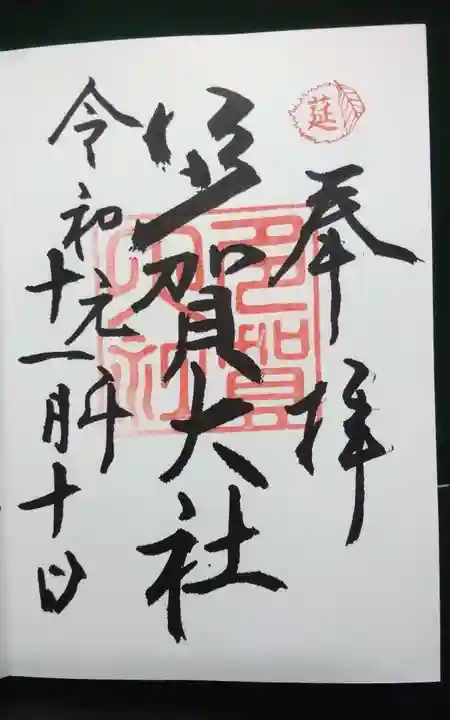 莚
奉拝
多賀大社
多賀大社
令和元年
十一月十日